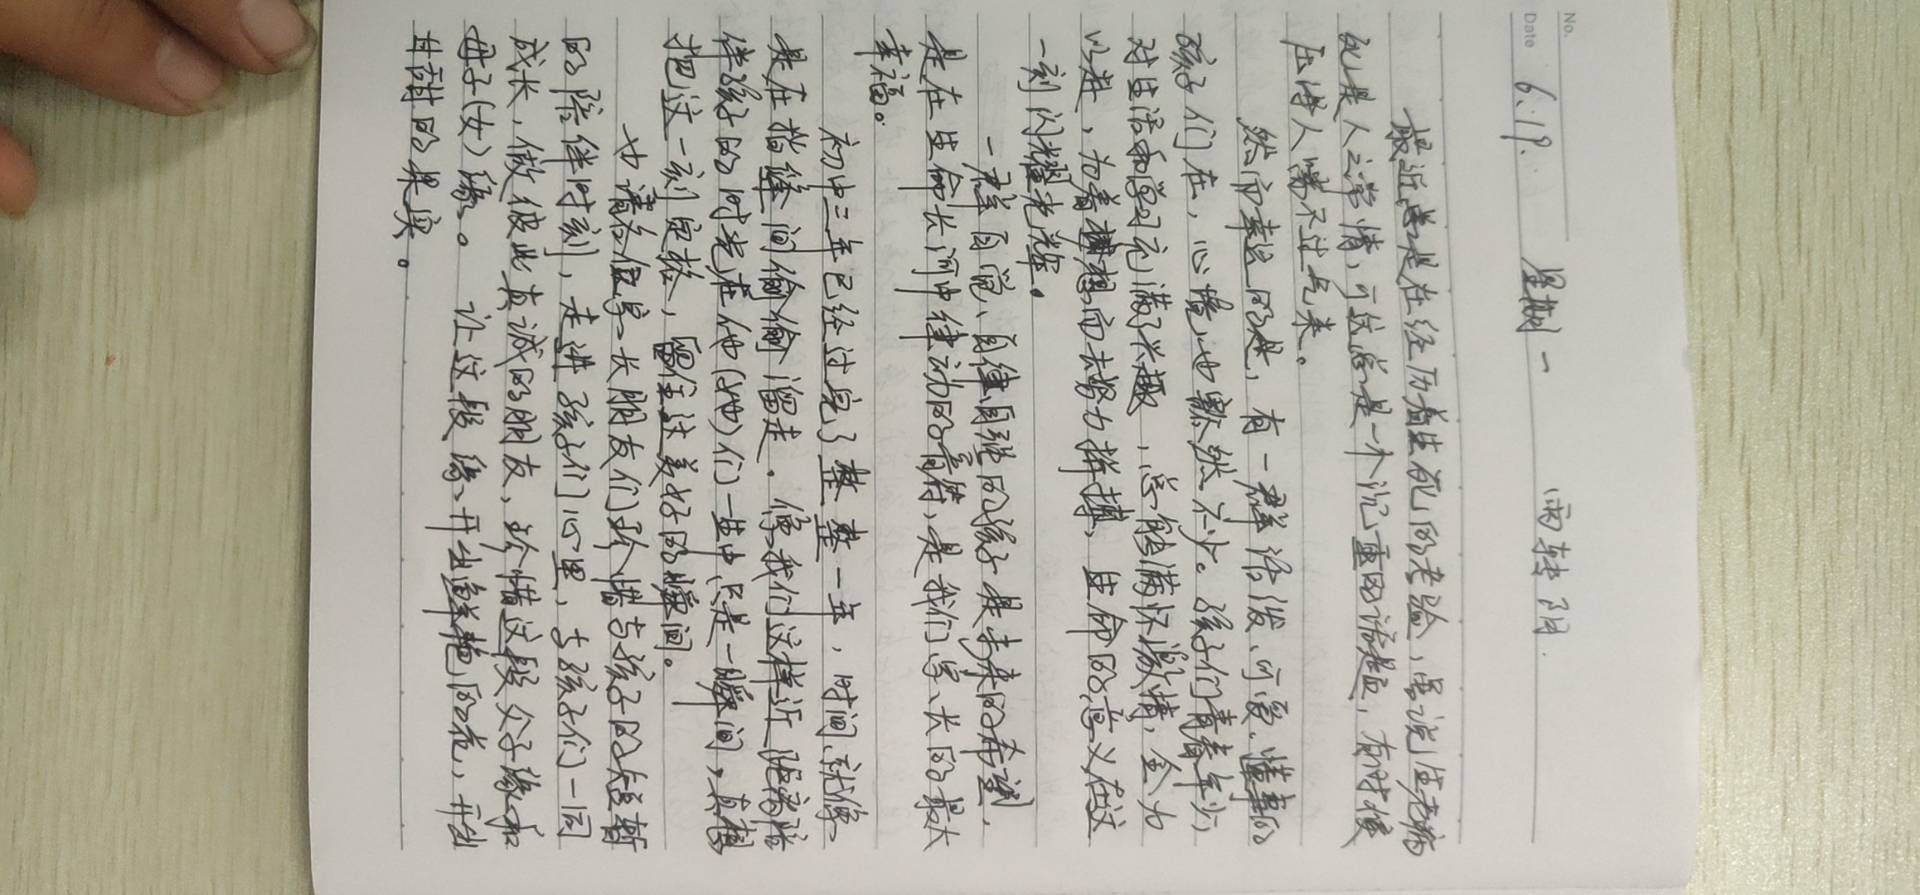 No.
Date 6.19. 星期一 雨转阴.
最近总是在经历着生死的考验，虽说生老病
死是人之常情，可这总是一个沉重的话题，有时候
压得人喘不过气来。
然而幸运的是，有一群活泼、可爱、懂事的
孩子们在，心境也默然不少。孩子们青春年少，
对生活和学习充满了兴趣，总能满怀激情，全力
以赴，为着梦想而去努力拼搏，生命的意义在这
一刻闪耀光辉。
一群自觉、自律、自强的孩子是未来的希望，
是在生命长河中律动的音符，是我们家长的最大
幸福。
初中三年已经过完了整整一年，时间就像
是在指缝间偷偷溜走。像我们这样近距离陪
伴孩子的时光在他(她)们一生中只是一瞬间，真想
把这一刻定格，留住这美好的瞬间。
也请各位家长朋友们珍惜与孩子的短暂
的陪伴时刻，走进孩子们心里，与孩子们一同
成长，做彼此真诚的朋友，珍惜这段父子缘和
母子(女)缘。让这段缘，开出鲜艳的花，开出
甘甜的果实。